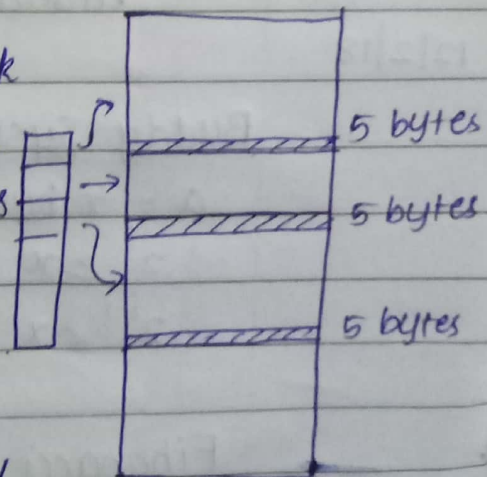 k
5 bytes
s
5 bytes
5 bytes